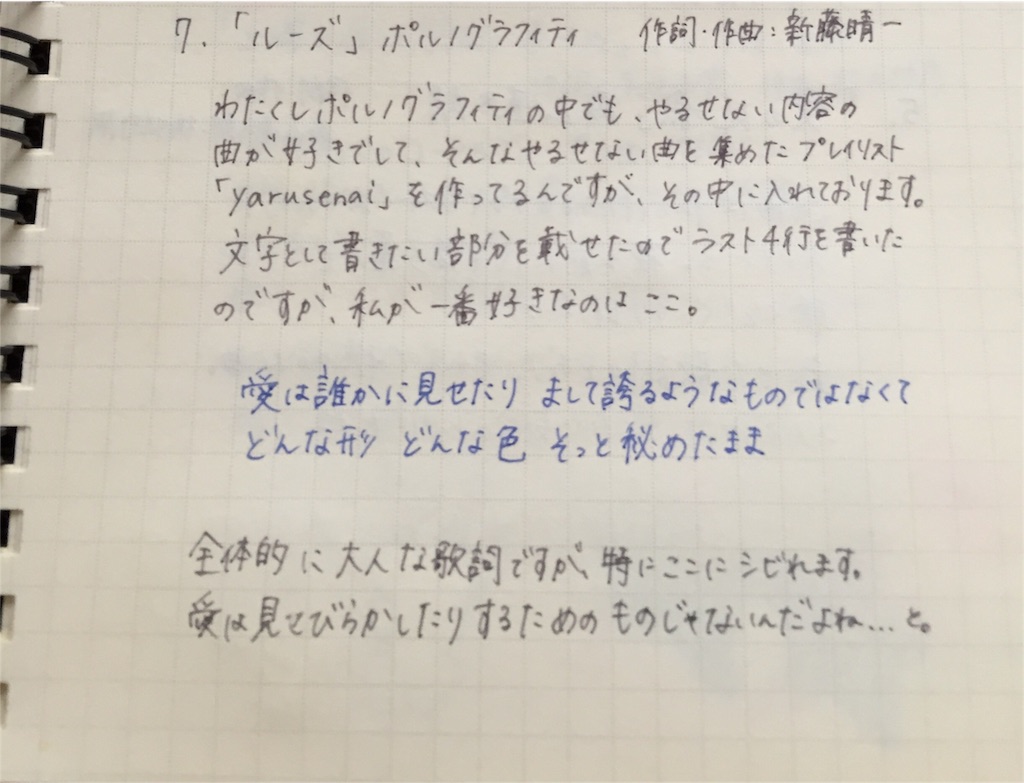 7.「ルーズ」ポルノグラフィティ　作詞・作曲：新藤晴一
わたくしポルノグラフィティの中でも、やるせない内容の
曲が好きでして、そんなやるせない曲を集めたプレイリスト
「yarusenai」を作ってるんですが、その中に入れております。
文字として書きたい部分を載せたのでラスト4行を書いた
のですが、私が一番好きなのはここ。
愛は誰かに見せたり　まして誇るようなものではなくて
どんな形　どんな色　そっと秘めたまま
全体的に大人な歌詞ですが、特にここにシビれます。
愛は見せびらかしたりするためのものじゃないんだよね…と。